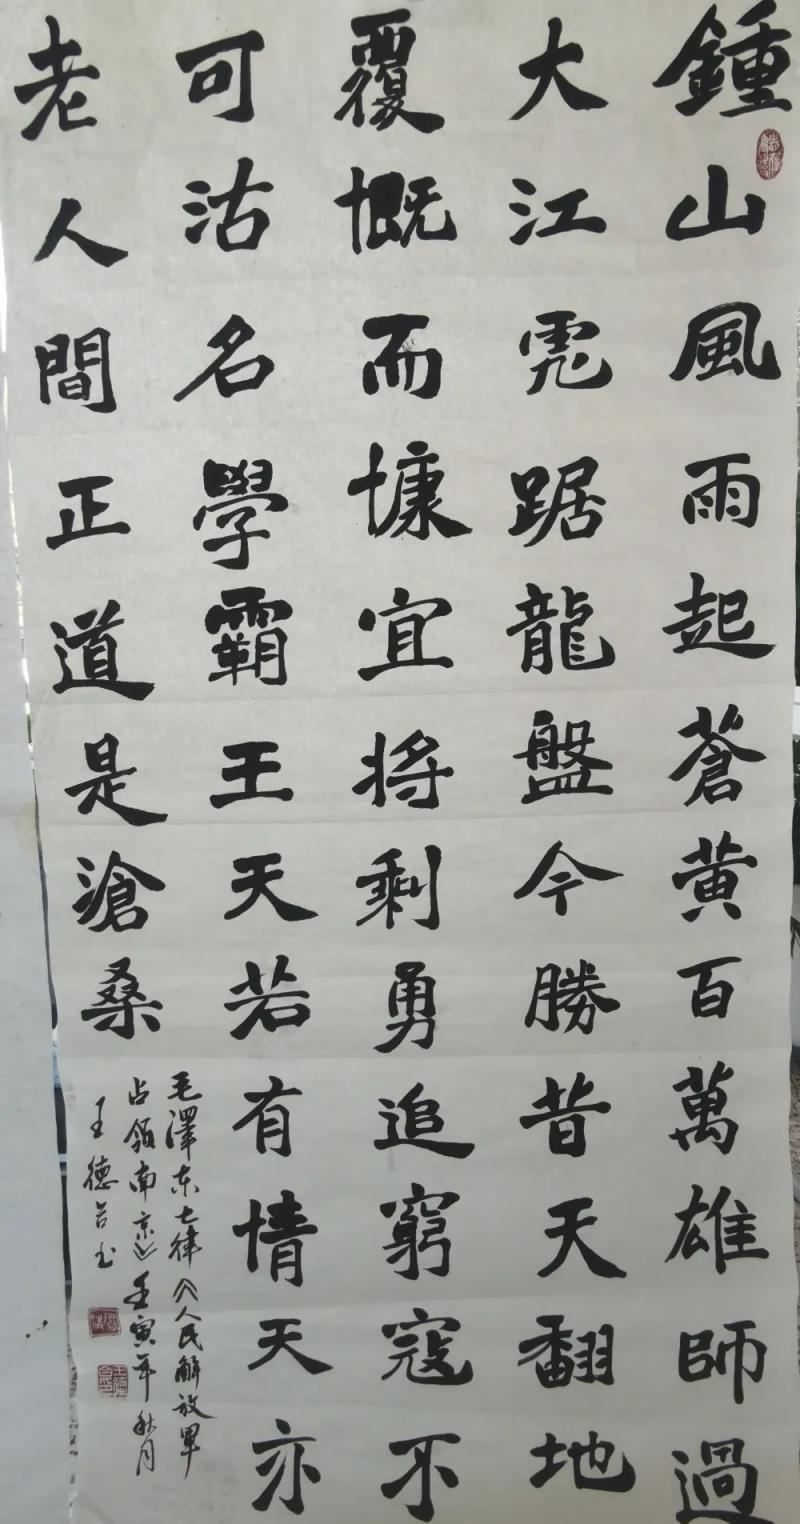 鍾山風雨起蒼黄百萬雄師過
大江虎踞龍盤今勝昔天翻地
覆慨而慷宜将剩勇追窮寇不
可沽名學霸王天若有情天亦
老人間正道是滄桑
毛澤东七律《人民解放軍
占領南京》壬寅年秋月
王德书